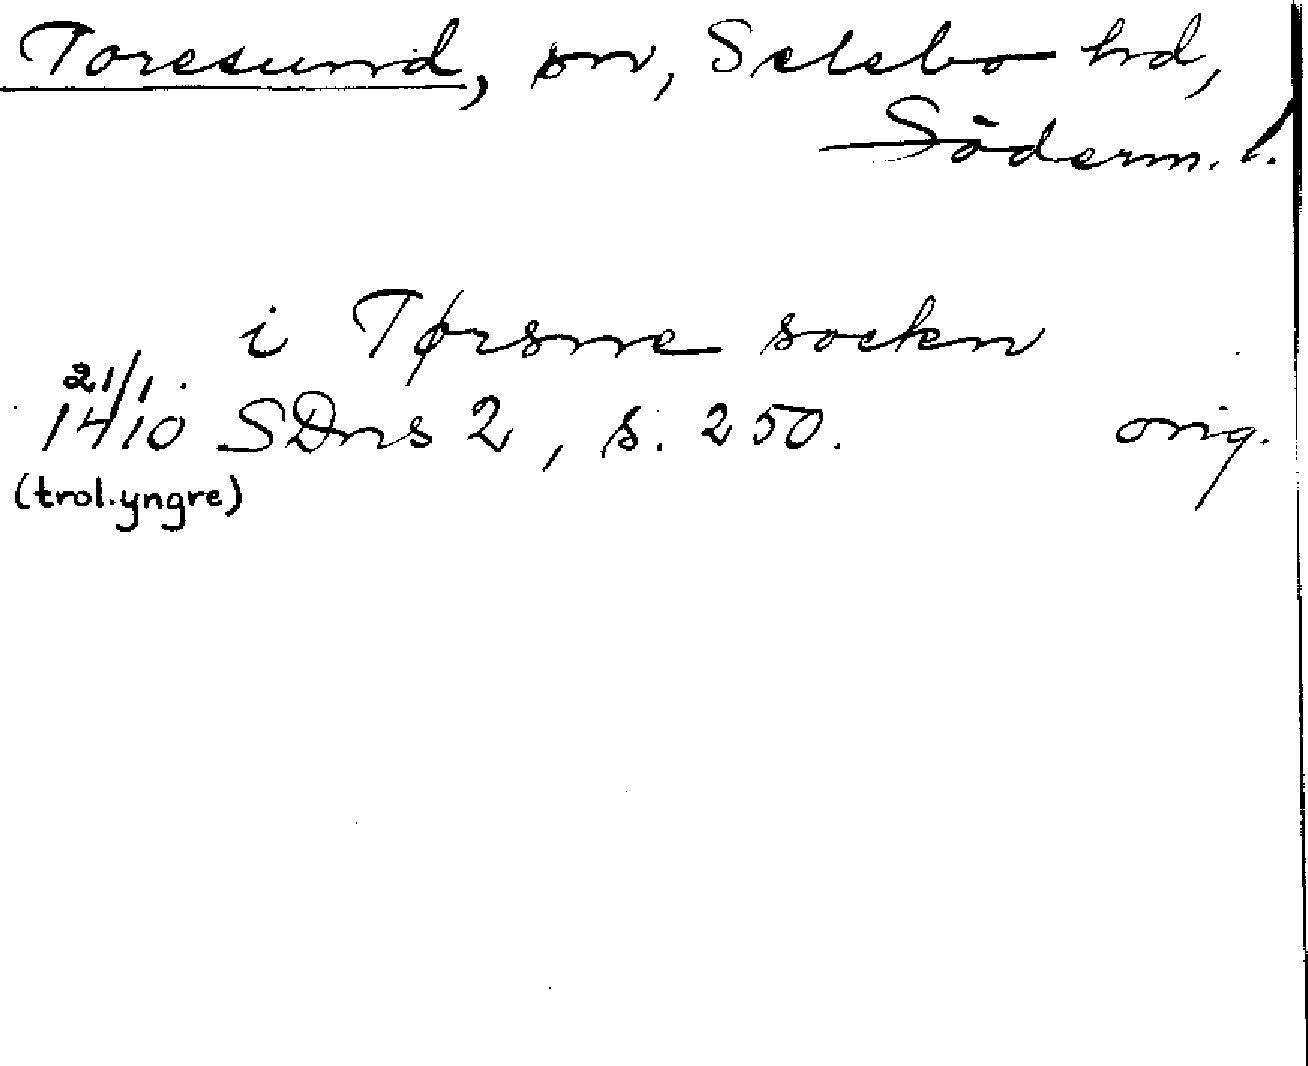 Toresund, sn, Selebo hd,
Söderm. l.
i Tørsne sockn
21/1
1410 SDns 2, s. 250. orig.
(trol. yngre)